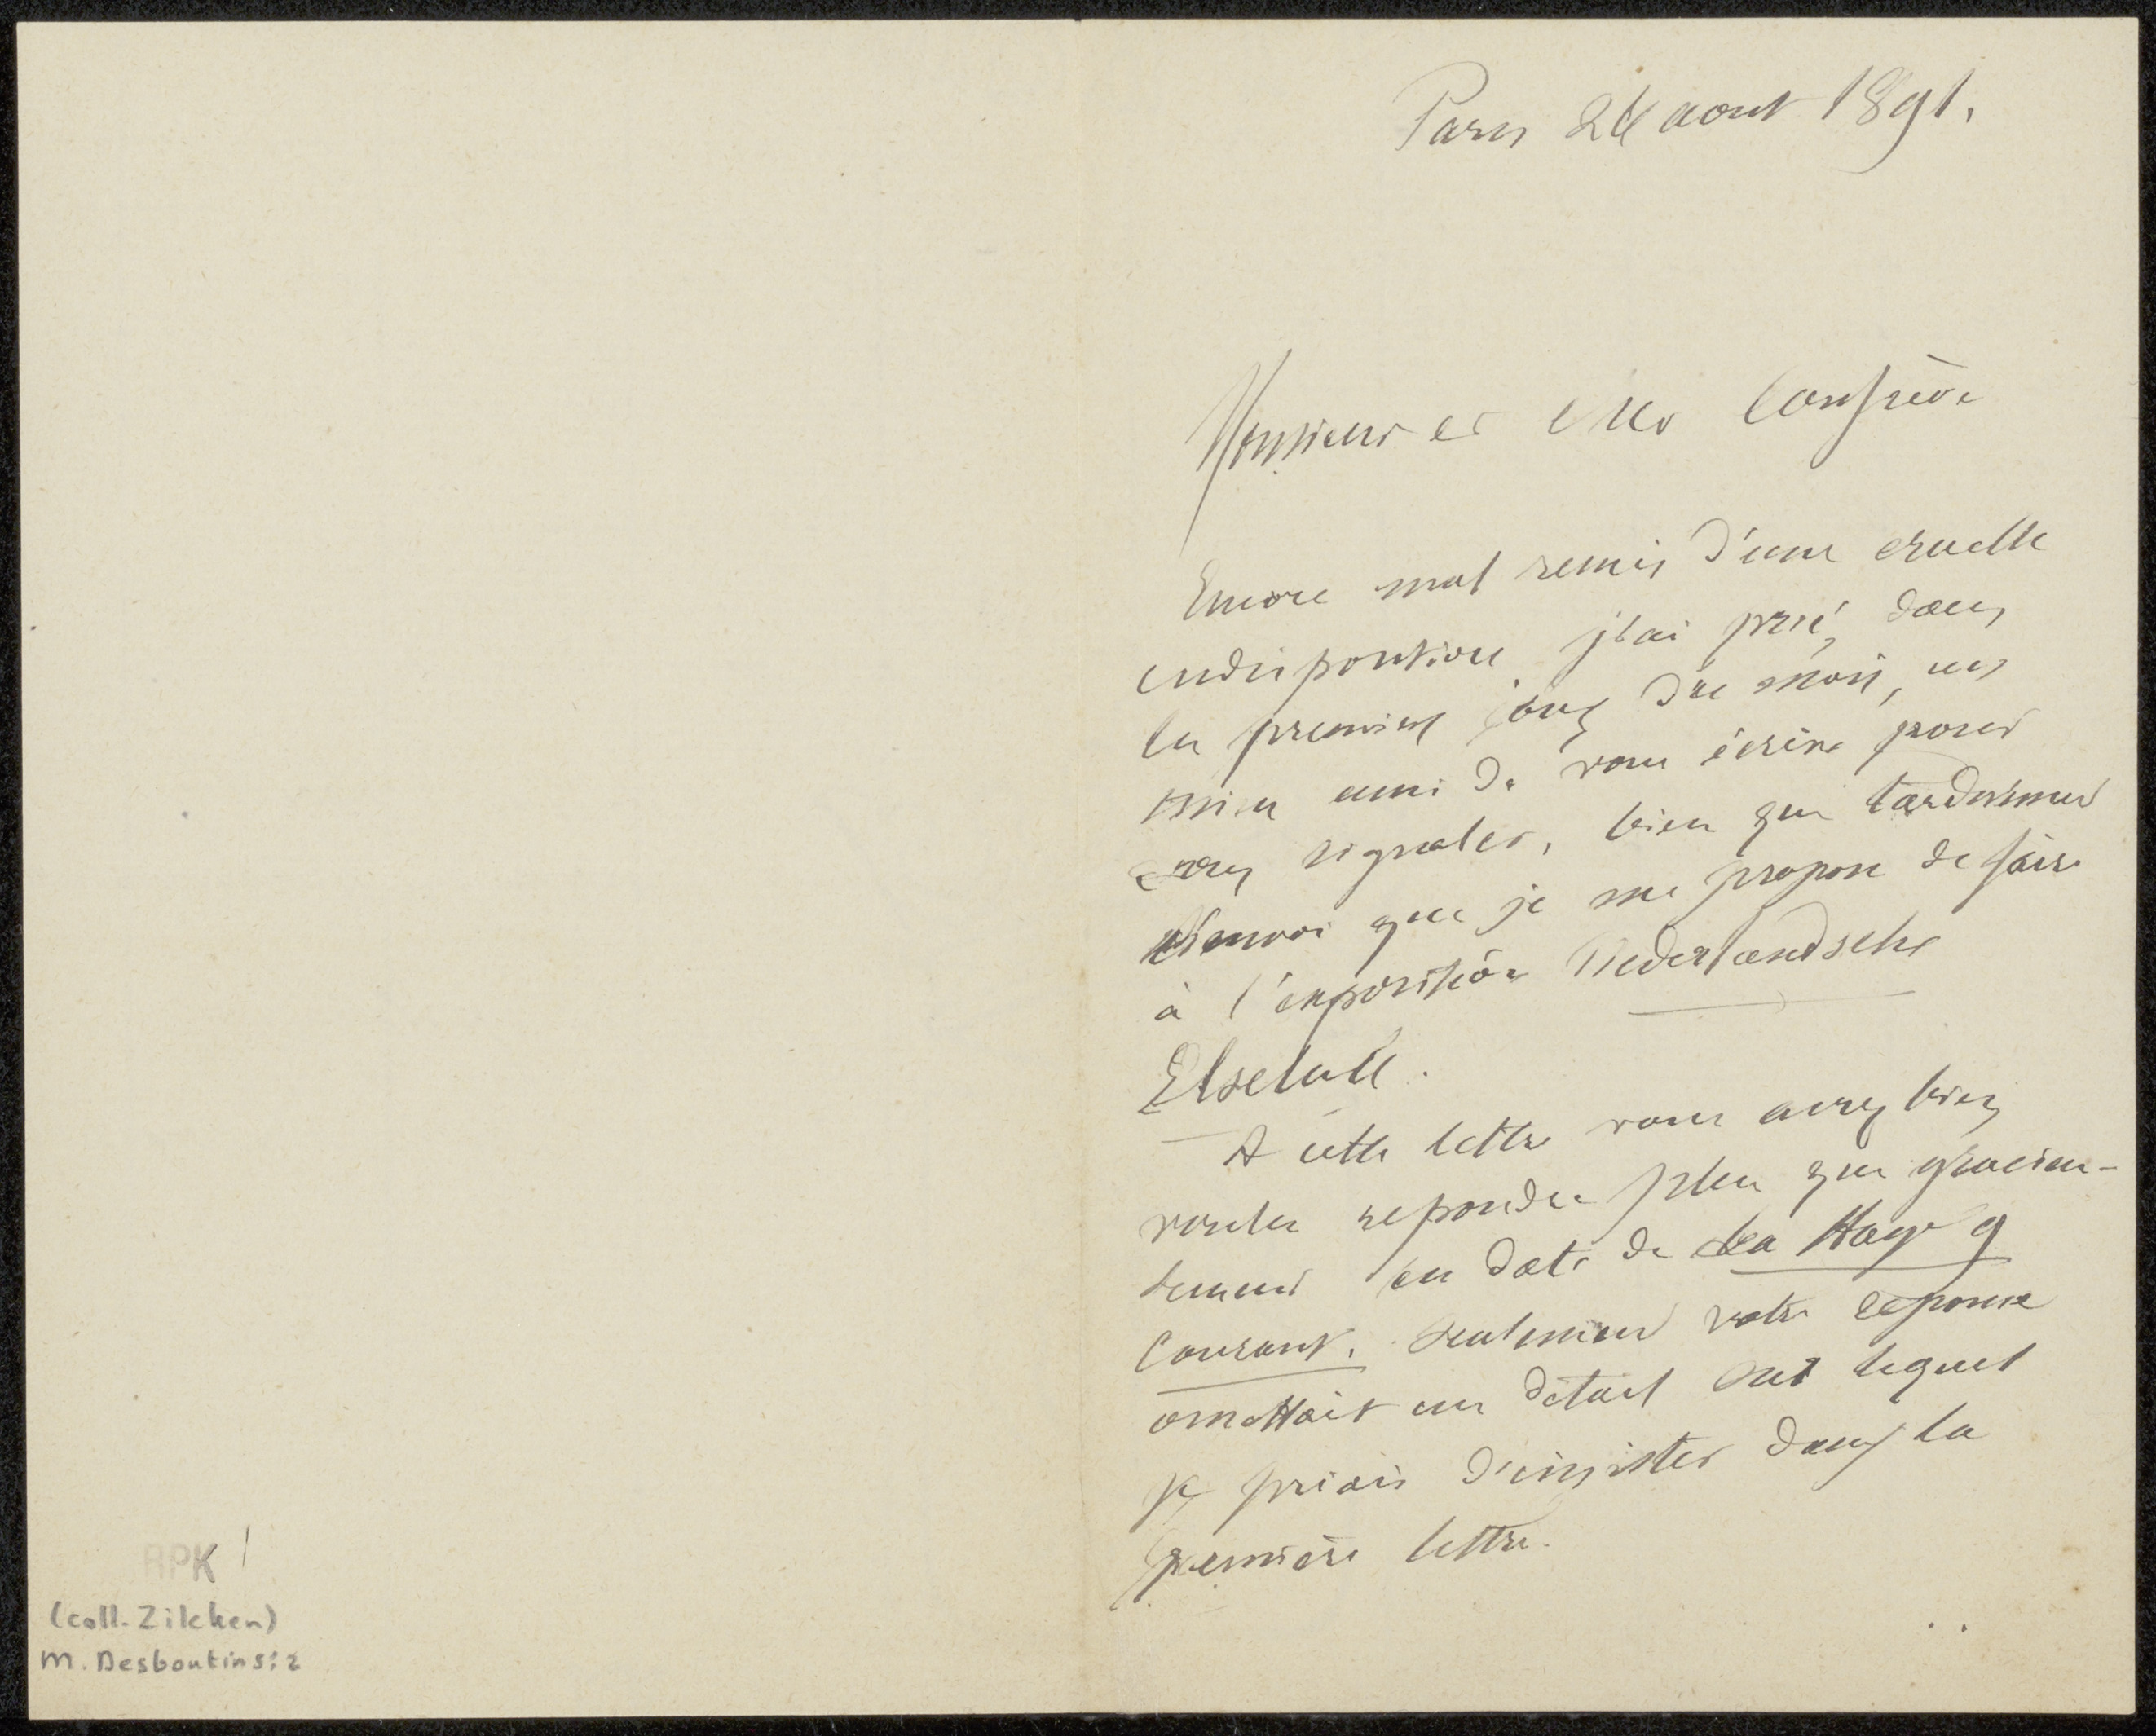 Paris 24 aout 1891.
Monsieur et cher Confrère
Encore mal remis d'une cruelle
indisposition j'ai prié, dans
les premiers jours du mois, un
mien ami de vous écrire pour
vous signaler, bien que tardivement
l'envoi que je me propose de faire
à l'exposition Nederlandsche
Etsclub.
A cette lettre vous avez bien
voulu repondre plus que gracieu-
sement en date de La Haye 9
Courant. Seulement votre reponse
omettait un détail sur lequel
je priais d'insister dans la
première lettre.
RPK
(coll. Zilcken)
M. Desboutins: 2